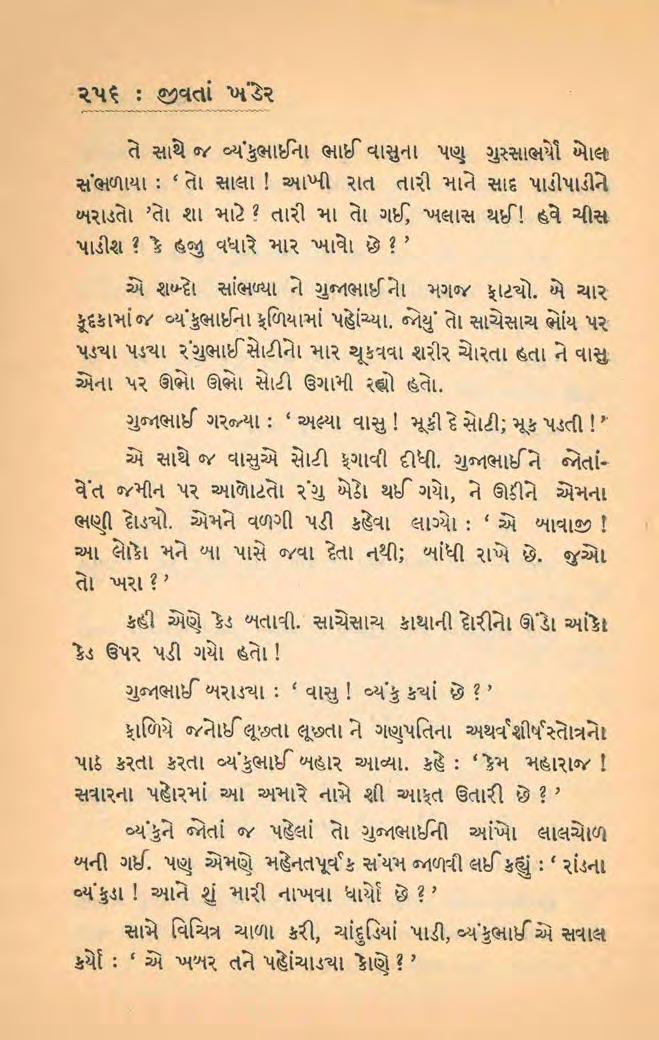 ૨૫૬ : જીવતાં ખંડેર
તે સાથે જ વ્યંકુભાઈના ભાઈ વાસુના પણ ગુસ્સાભર્યા બોલ
સંભળાયા : ‘ તો સાલા ! આખી રાત તારી માને સાદ પાડીપાડીને
બરાડતો ’તો શા માટે ? તારી મા તો ગઈ, ખલાસ થઈ! હવે ચીસ
પાડીશ ? કે હજી વધારે માર ખાવો છે ? ’
એ શબ્દો સાંભળ્યા ને ગુજાભાઈનો મગજ ફાટયો. બે ચાર
કૂદકામાં જ વ્યંકુભાઈના ફળિયામાં પહોંચ્યા. જોયું તો સાચેસાચ ભોંય પર
પડયા પડયા રંગુભાઈ સોટીનો માર ચૂકવવા શરીર ચોરતા હતા ને વાસુ
એના પર ઊભો ઊભો સોટી ઉગામી રહ્યો હતો.
ગુજાભાઈ ગરજ્યા : ‘ અલ્યા વાસુ ! મૂકી દે સોટી; મૂક પડતી ! ’
એ સાથે જ વાસુએ સોટી ફગાવી દીધી. ગુજાભાઈને જોતાં-
વેંત જમીન પર આળોટતો રંગુ બેઠો થઈ ગયો, ને ઊઠીને એમના
ભણી દોડયો. એમને વળગી પડી કહેવા લાગ્યો : ‘ એ બાવાજી !
આ લોકો મને બા પાસે જવા દેતા નથી; બાંધી રાખે છે. જુઓ
તો ખરા ? ’
કહી એણે કેડ બતાવી. સાચેસાચ કાથાની દોરીનો ઊંડો આંકો
કેડ ઉપર પડી ગયો હતો !
ગુજાભાઈ બરાડયા : ‘ વાસુ ! વ્યંકુ કયાં છે ? ’
ફાળિયે જનોઈ લૂછતા લૂછતા ને ગણપતિના અથર્વશીર્ષસ્તોત્રનો
પાઠ કરતા કરતા વ્યંકુભાઈ બહાર આવ્યા. કહે : ‘ કેમ મહારાજ !
સવારના પહોરમાં આ અમારે નામે શી આફત ઉતારી છે ? ’
વ્યંકુને જોતાં જ પહેલાં તો ગુજાભાઈની આંખો લાલચોળ
બની ગઈ. પણ એમણે મહેનતપૂર્વક સંયમ જાળવી લઈ કહ્યું : ‘ રાંડના
વ્યંકુડા ! આને શું મારી નાખવા ધાર્યો છે ? ’
સામે વિચિત્ર ચાળા કરી, ચાંદુડિયાં પાડી, વ્યંકુભાઈ એ સવાલ
કર્યો : ‘ એ ખબર તને પહોંચાડયા કોણે ? ’